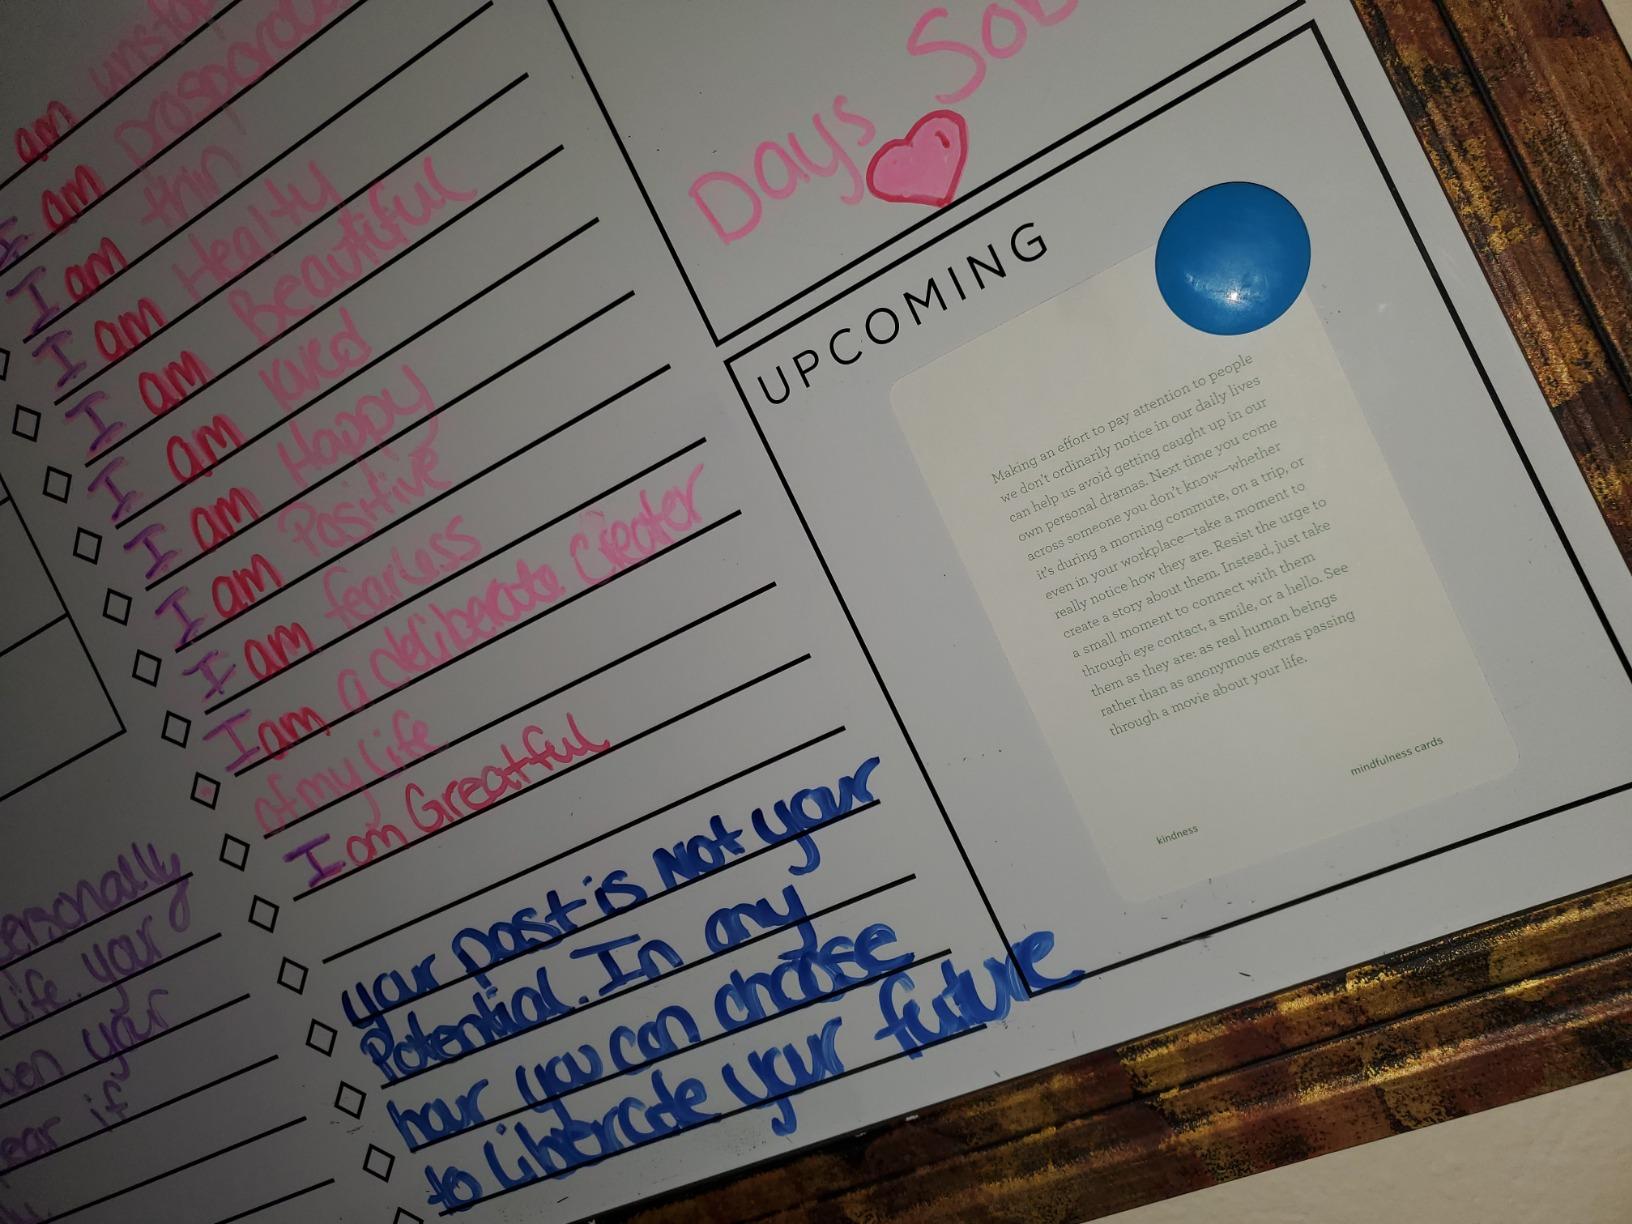 am
I am prosporous
I am thin
I am Healty
I am Beautiful
I am loved
I am Happy
I am Positive
I am fearless
I am a deliberate Creater
of my life
I am Greatful
your past is Not your
Potential. In any
hour you can choose
to Liberate your future
Days
UPCOMING
Making an effort to pay attention to people
we don't ordinarily notice in our daily lives
can help us avoid getting caught up in our
own personal dramas. Next time you come
across someone you don't know—whether
it's during a morning commute, on a trip, or
even in your workplace—take a moment to
really notice how they are. Resist the urge to
create a story about them. Instead, just take
a small moment to connect with them
through eye contact, a smile, or a hello. See
them as they are: as real human beings
rather than as anonymous extras passing
through a movie about your life.
mindfulness cards
kindness
life. your
your
if